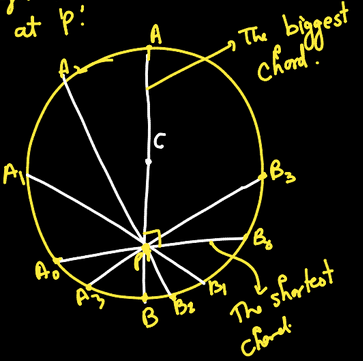 at 'P'.
A
The biggest
chord.
A₂
C
A₁
B₃
B₀
P
A₀
A₃
B
B₂
B₁
The shortest
chord.